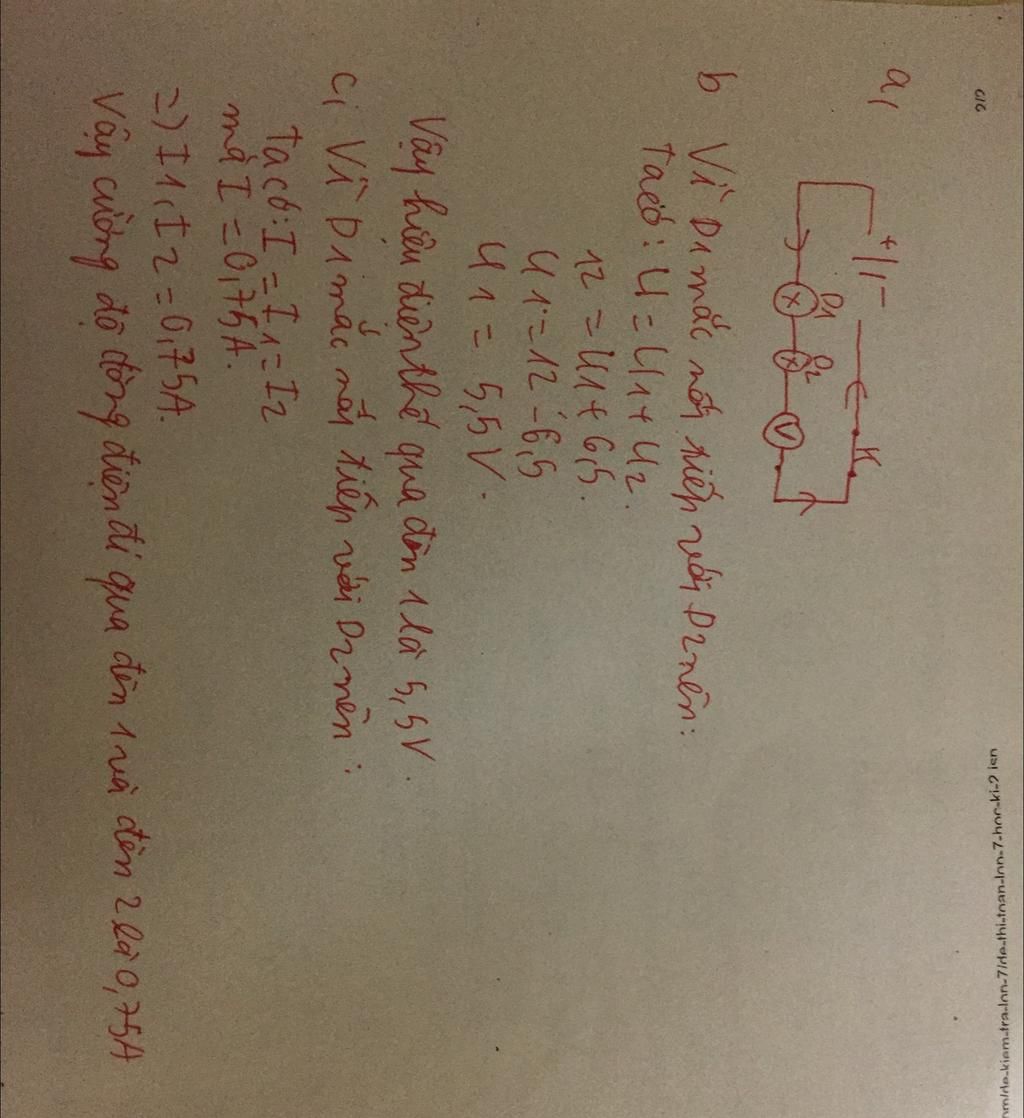 6/6
nm/de-kiem-tra-lop-7/de-thi-toan-lop-7-hoc-ki-2.jsp
a,
+ -
K
D1 D2
V
b Vì D1 mắc nối tiếp với D2 nên:
Ta có: U = U1 + U2.
12 = U1 + 6,5.
U1 = 12 - 6,5
U1 = 5,5V.
Vậy hiệu điện thế qua đèn 1 là 5,5V.
c, Vì D1 mắc nối tiếp với D2 nên:
Ta có: I = I1 = I2
mà I = 0,75A.
=> I1, I2 = 0,75A.
Vậy cường độ dòng điện đi qua đèn 1 và đèn 2 là 0,75A